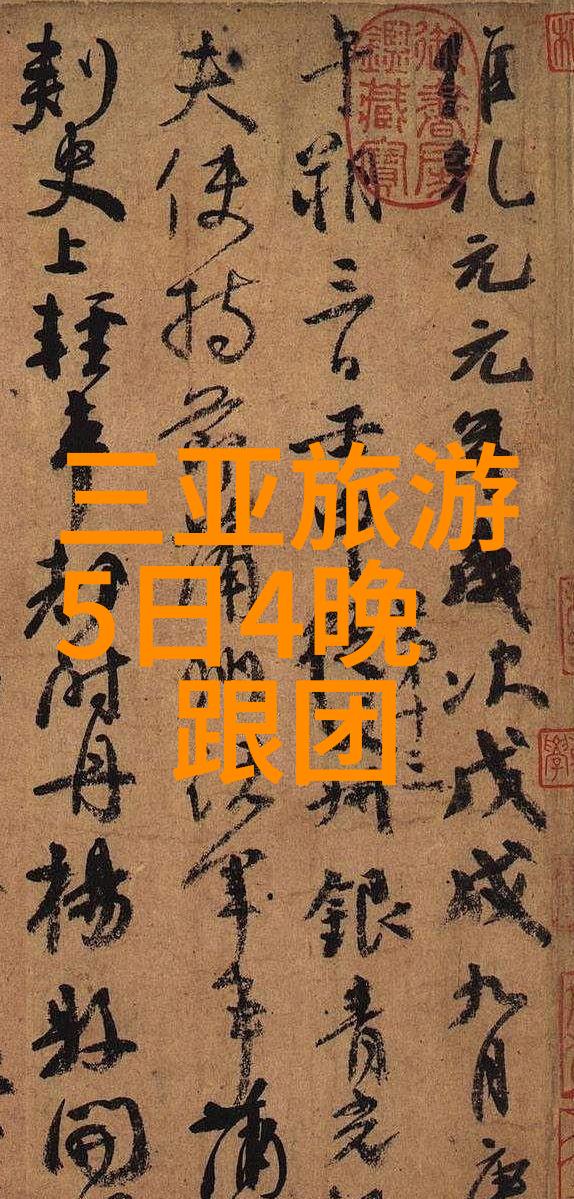 三亚旅游
5日4晚
跟团
維乾元元年歲次戊戌九月庚
午朔三日壬申
第十三
銀青光
夫使持節蒲州諸軍事蒲
刺史上輕車都尉丹楊縣開
御書房
鑑藏寶